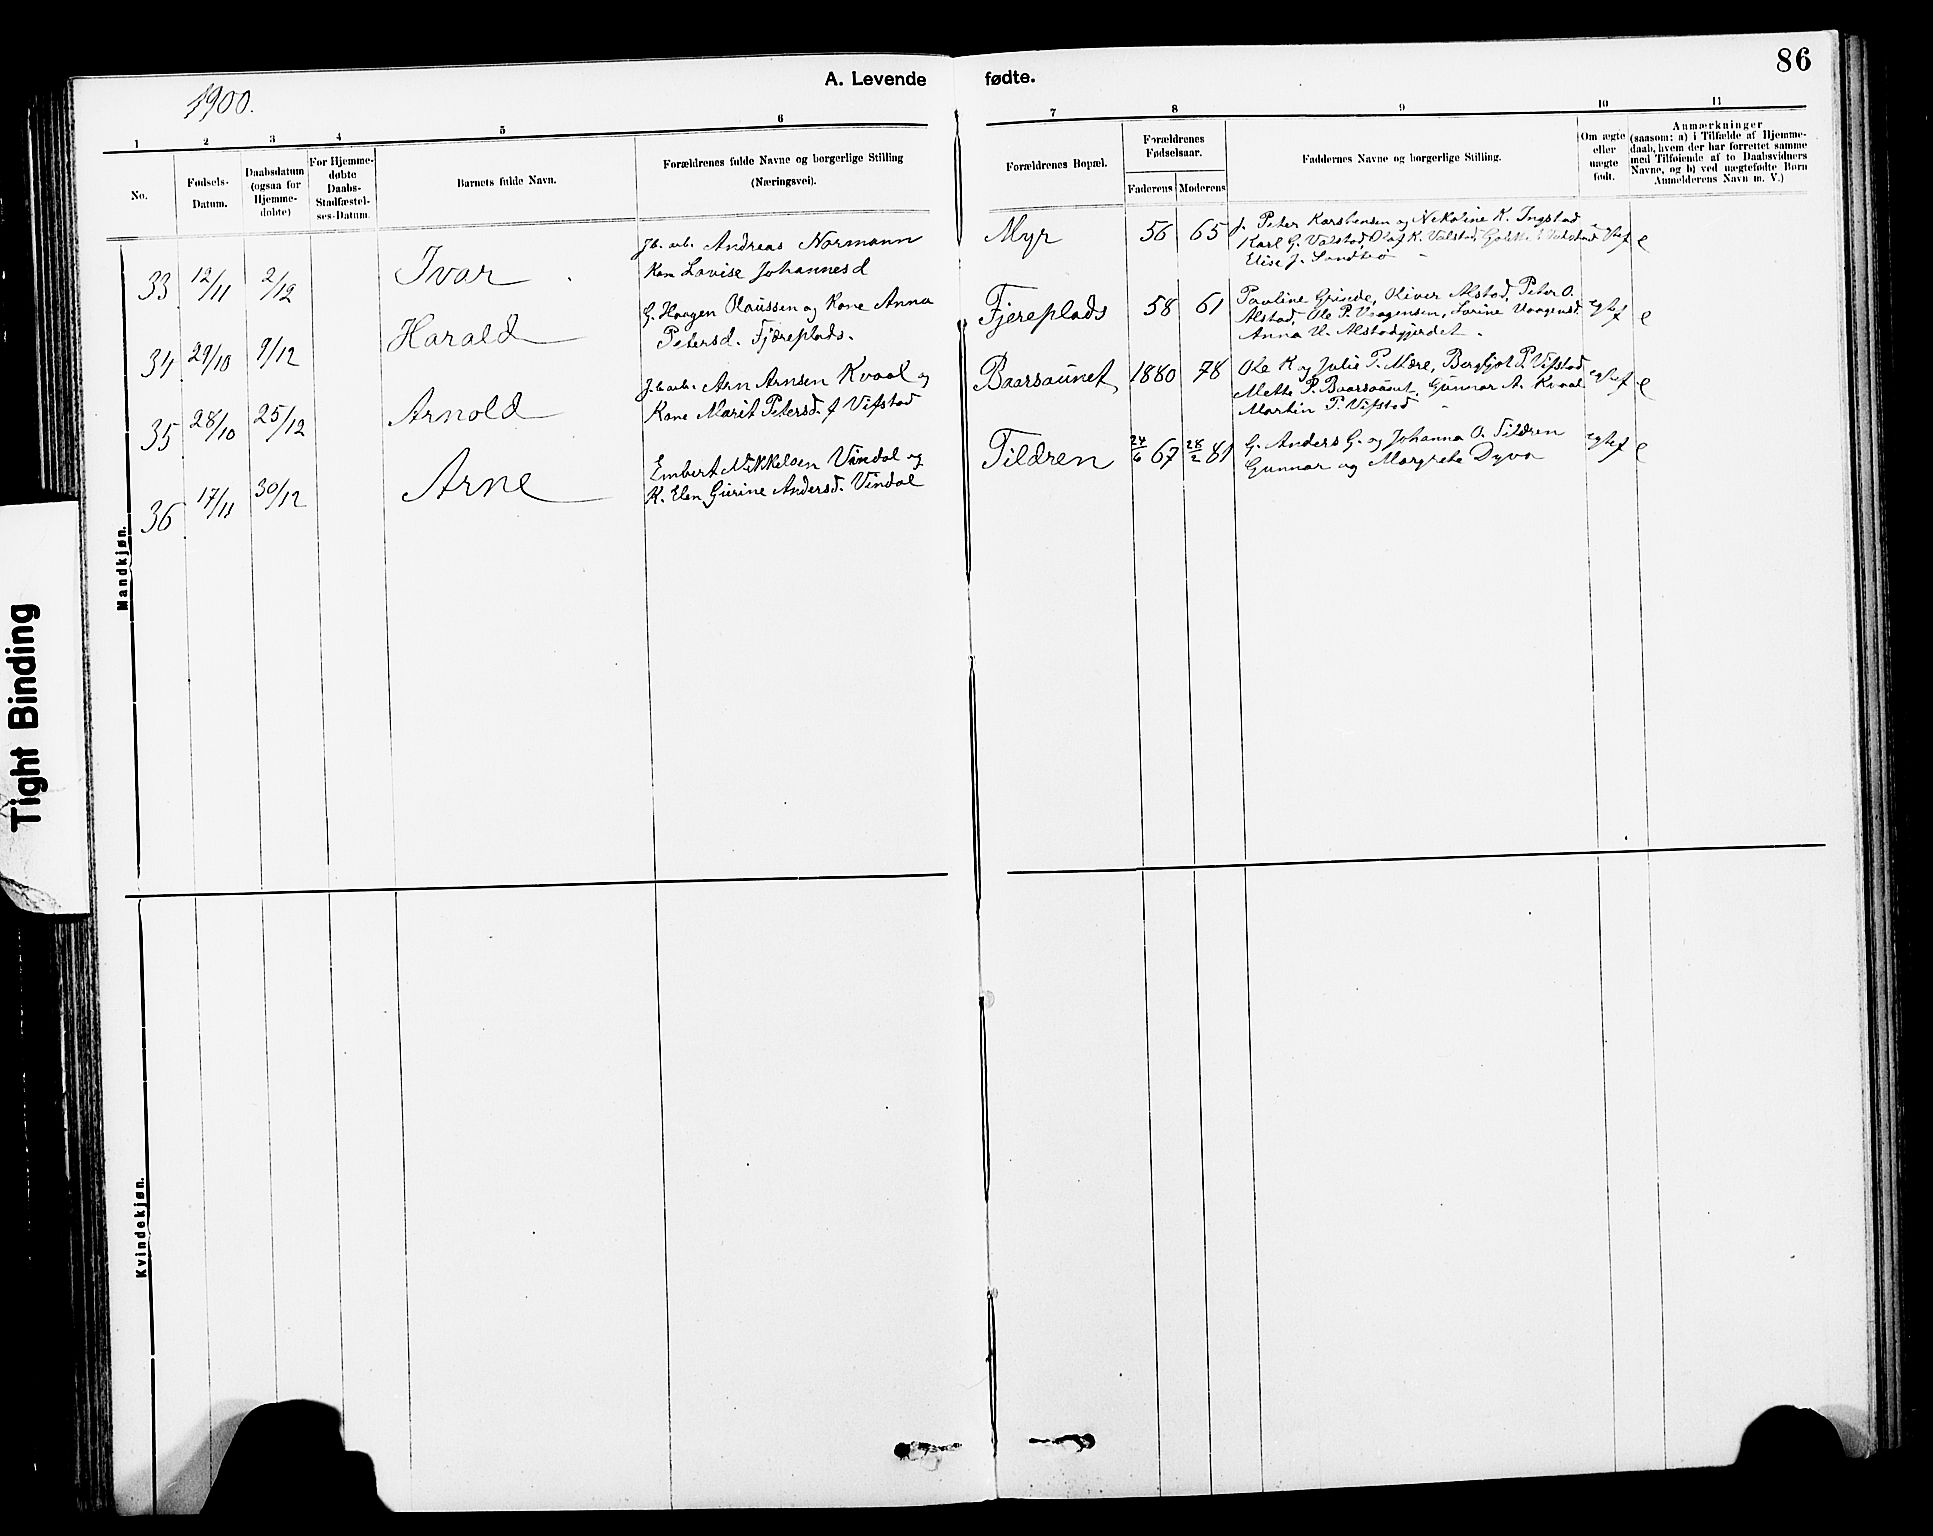 86
A. Levende fødte.
1900.
1 2 3 4 5 6 7 8 9 10 11
No.
Fødsels-
Datum.
Daabsdatum
(ogsaa for
Hjemme-
døbte)
For Hjemme-
døbte
Daabs-
Stadfæstel-
ses-Datum.
Barnets fulde Navn.
Forældrenes fulde Navne og borgerlige Stilling
(Næringsvei).
Forældrenes Bopæl.
Forældrenes
Fødselsaar.
Faderens Moderens
Faddernes Navne og borgerlige Stilling.
Om ægte
eller
uægte
født.
Anmærkninger
(saasom: a) i Tilfælde af Hjemme-
daab, hvem der har forrettet samme
med Tilføiende af to Daabsvidners
Navne, og b) ved uægtefødte Børn
Anmelderens Navn m. V.)
Mandkjøn.
33 12/11 2/12 Ivar
Jb. arb. Andreas Normann
Kone Lovise Johannesd
Myr 56 65
Peter Karstensen og Nikoline K. Ingstad
Karl G. Valstad, Olaf K. Valstad
Elise J. Sandbrø
e
34 29/10 9/12 Harald
G. Haagen Olaussen og Kone Anna
Petersd. Fjæreplads.
Fjereplads 58 61
Pauline Grinde, Oliver Alstad, Peter O.
Alstad, Ole P. Vaagensen, Sarine Vaagensd.
Anna U. Alstadgjerdet
egtef e
35 28/10 25/12 Arnold
Jb. arb. Arn Arnsen Kvaal og
Kone Marit Petersd. f Vifstad
Baarsaunet 1880 78
Ole K og Julie P. Mære, Bergljot P. Vifstad
Mette P. Baarsaunet, Gunnar A. Kvaal
Martin P. Vifstad
egtef e
36 17/11 30/12 Arne
Embert Mikkelsen Vindal og
K. Elen Gurine Andersd. Vindal
Tildren 24/6 67 28/2 81
G. Anders G. og Johanna O. Tildren
Gunnar og Margrete Dyva
egtef e
Kvindekjøn.
Tight Binding